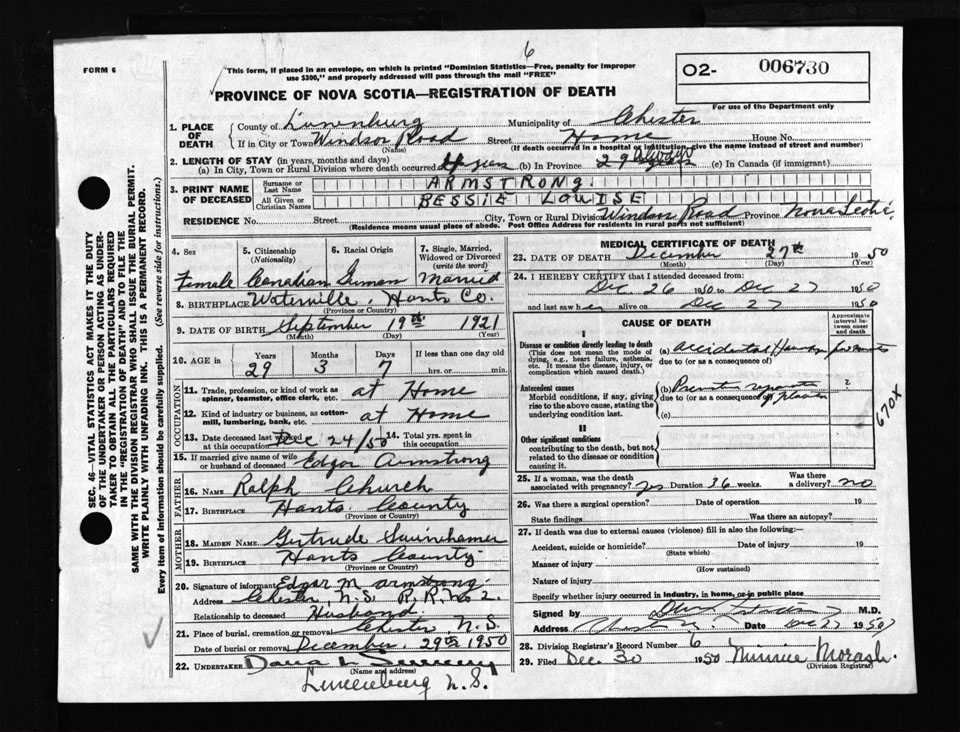 6
FORM 6
This form, if placed in an envelope, on which is printed "Dominion Statistics—Free, penalty for improper
use $300," and properly addressed will pass through the mail "FREE"
O2- 006730
PROVINCE OF NOVA SCOTIA—REGISTRATION OF DEATH
For use of the Department only
1. PLACE OF DEATH
County of Lunenburg Municipality of Chester
If in City or Town Windsor Road Street Home House No.
(Name) (If death occurred in a hospital or institution, give name instead of street and number)
2. LENGTH OF STAY (in years, months and days)
(a) In City, Town or Rural Division where death occurred 4 years (b) In Province 29 always (c) In Canada (if immigrant)
3. PRINT NAME OF DECEASED
Surname or Last Name ARMSTRONG.
All Given or Christian Names BESSIE LOUISE
RESIDENCE No. Street City, Town or Rural Division Windsor Road Province Nova Scotia
(Residence means usual place of abode. Post Office Address for residents in rural parts not sufficient)
4. Sex
Female
5. Citizenship
(Nationality)
Canadian
6. Racial Origin
German
7. Single, Married, Widowed or Divorced
(write the word)
Married
8. BIRTHPLACE Waterville, Hants Co.
(Province or Country)
9. DATE OF BIRTH September 19th 1921
(Month) (Day) (Year)
10. AGE in
Years Months Days If less than one day old
29 3 7 hrs. or min.
OCCUPATION
11. Trade, profession, or kind of work as
spinner, teamster, office clerk, etc. at Home
12. Kind of industry or business, as cotton-
mill, lumbering, bank, etc. at Home
13. Date deceased last worked
at this occupation Dec 24/50
14. Total yrs. spent in
this occupation
15. If married give name of wife
or husband of deceased Edgar Armstrong
FATHER
16. NAME Ralph Church
17. BIRTHPLACE Hants County
(Province or Country)
MOTHER
18. MAIDEN NAME Gertrude Swinehamer
19. BIRTHPLACE Hants County
(Province or Country)
20. Signature of informant Edgar M Armstrong
Address Chester N.S. R.R. No 2.
Relationship to deceased Husband
21. Place of burial, cremation or removal Chester N.S.
Date of burial or removal December 29th 1950
22. UNDERTAKER
(Name and address)
Lunenburg N.S.
MEDICAL CERTIFICATE OF DEATH
23. DATE OF DEATH December 27th 1950
(Month) (Day) (Year)
24. I HEREBY CERTIFY that I attended deceased from:
Dec. 26 1950 to Dec 27 1950
and last saw her alive on Dec 27 1950
CAUSE OF DEATH
Approximate interval between onset and death
I
Disease or condition directly leading to death
(This does not mean the mode of
dying, e.g., heart failure, asthenia,
etc. It means the disease, injury, or
complication which caused death.)
(a) accidental
due to (or as a consequence of)
Antecedent causes
Morbid conditions, if any, giving
rise to the above cause, stating the
underlying condition last.
(b)
of placenta
2
due to (or as a consequence of)
(c)
670X
II
Other significant conditions
contributing to the death, but not
related to the disease or condition
causing it.
25. If a woman, was the death
associated with pregnancy? yes Duration 36 weeks. Was there
a delivery? no
26. Was there a surgical operation? Date of operation 19
State findings Was there an autopsy?
27. If death was due to external causes (violence) fill in also the following:—
Accident, suicide or homicide? Date of injury 19
(State which)
Manner of injury
(How sustained)
Nature of injury
Specify whether injury occurred in industry, in home, or in public place
Signed by M.D.
Address Date Dec 27 1950
28. Division Registrar's Record Number 6
29. Filed Dec. 30 1950 Minnie Morash
(Division Registrar)
SEC. 46—VITAL STATISTICS ACT MAKES IT THE DUTY
OF THE UNDERTAKER OR PERSON ACTING AS UNDER-
TAKER TO OBTAIN ALL THE PARTICULARS REQUIRED
IN THE "REGISTRATION OF DEATH" AND TO FILE THE
SAME WITH THE DIVISION REGISTRAR WHO SHALL ISSUE THE BURIAL PERMIT.
WRITE PLAINLY WITH UNFADING INK. THIS IS A PERMANENT RECORD.
Every item of information should be carefully supplied. (See reverse side for instructions.)